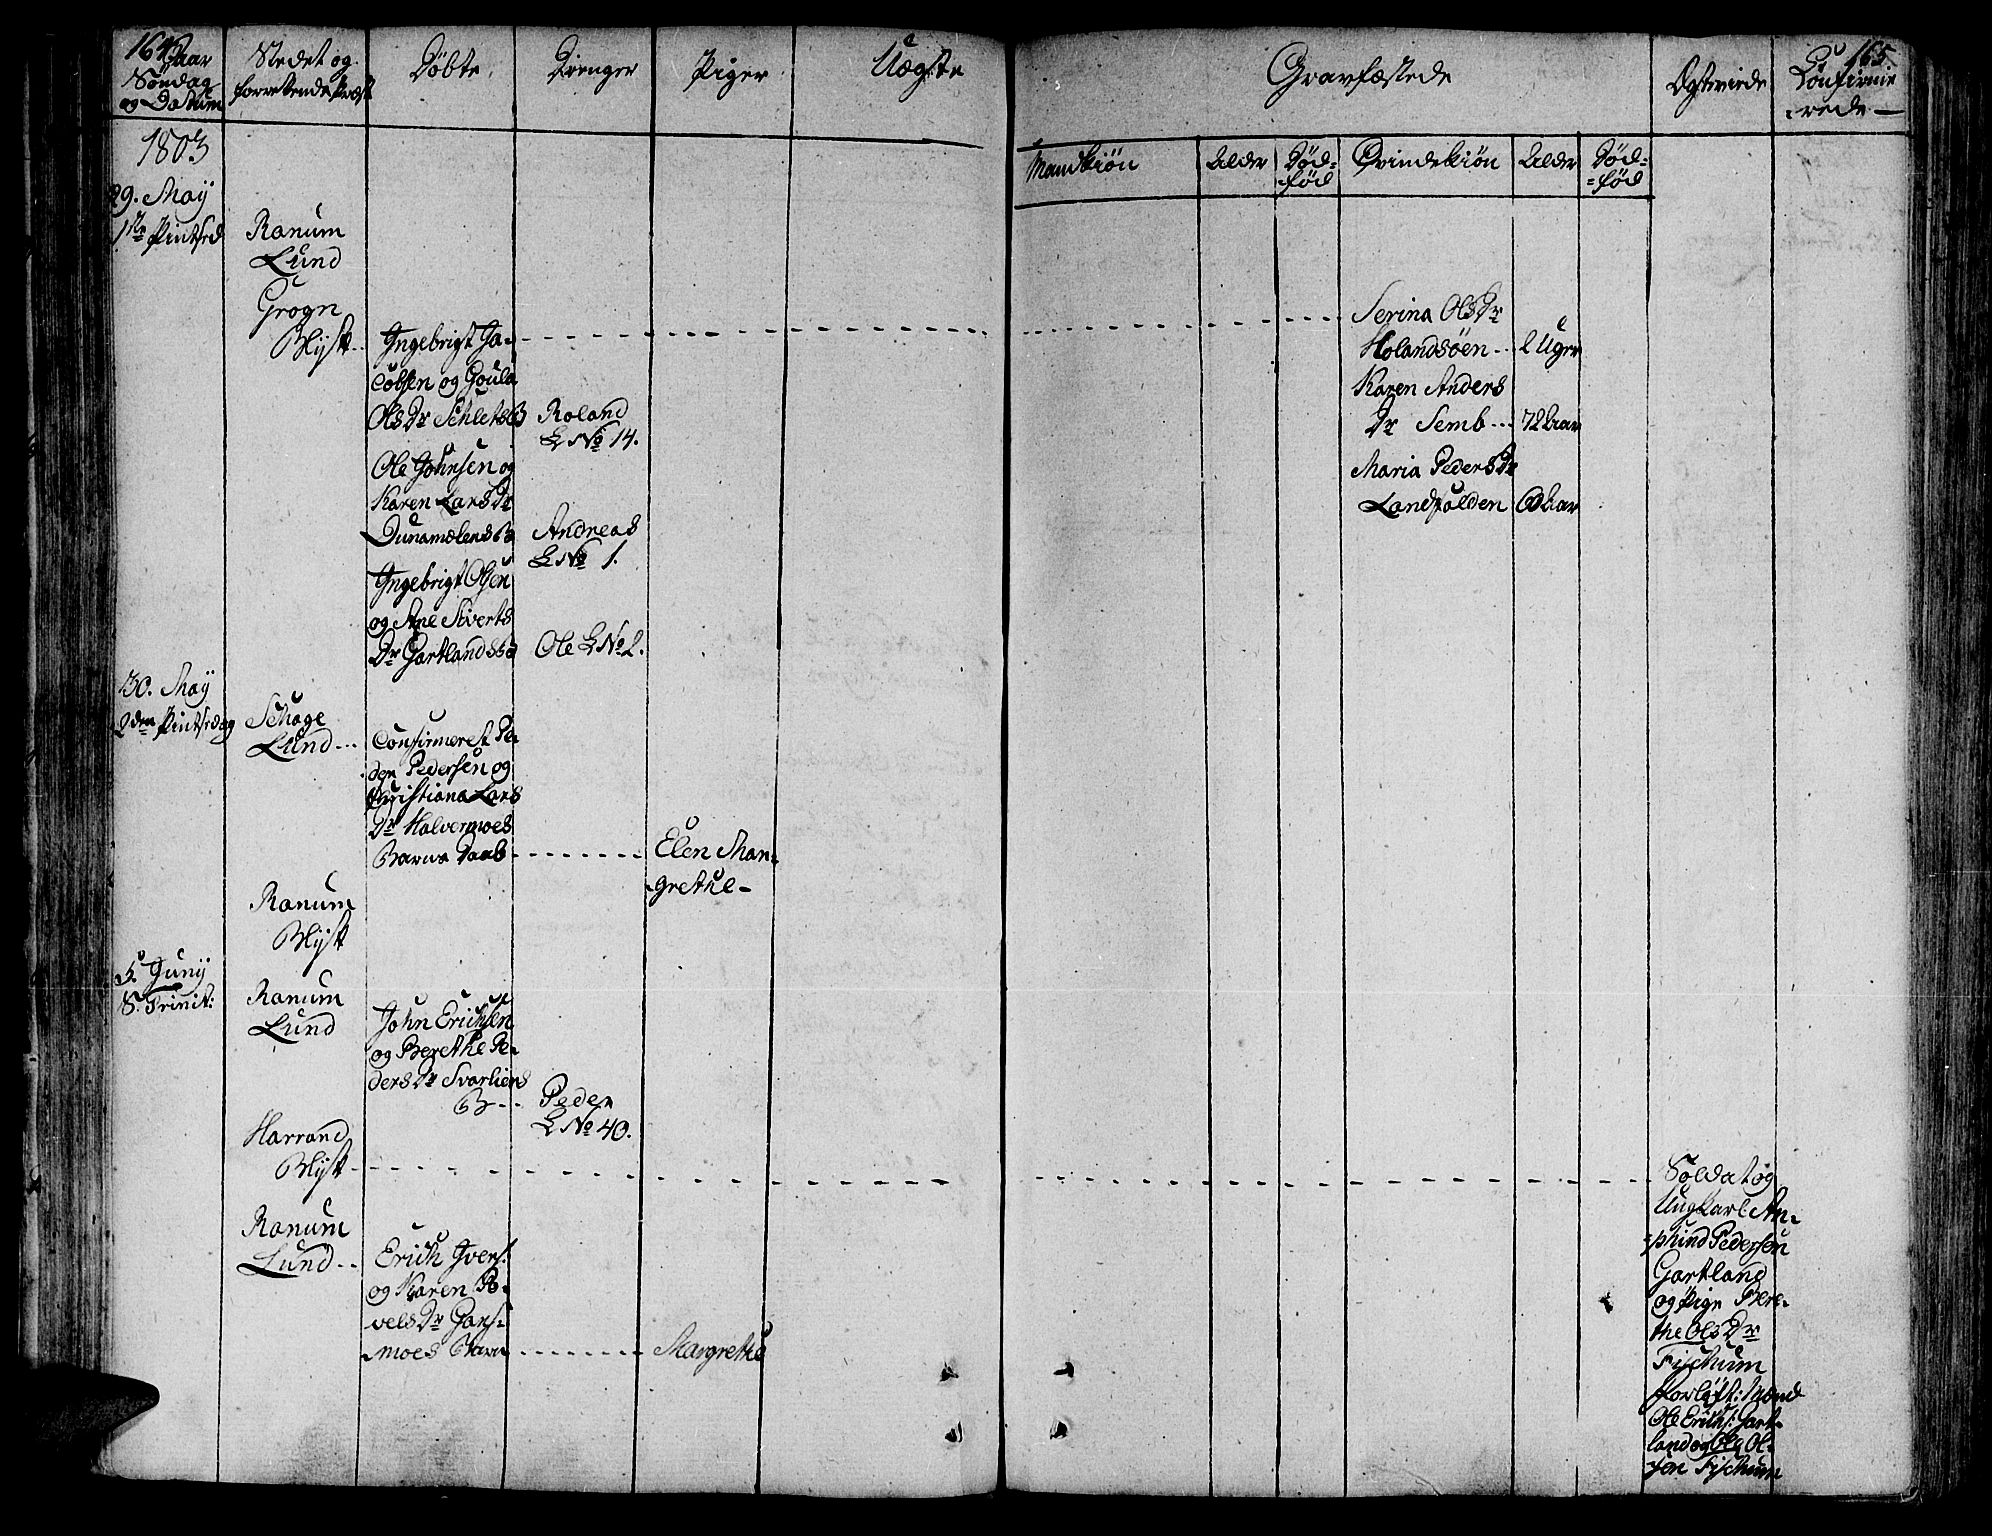 164
Aar
Søndag
og Datum
Stedet og
forrettende Præst
Døbte
Drenger
Piger
Uægte
Gravfæstede
Ægteviede
165
Confirme
rede
Mandkiøn
Alder
Død=
fød
Qvindekiøn
Alder
Død=
=fød
1803
29. May
1ste Pintsed
Ranum
Lund
Grogn
Blyst
Ingebrigt Ja-
cobsen og Goula
OlsDr Schletsb
Roland
L No 14.
Ole Johnsen og
Karen LarsDr
Dunamelensb
Andreas
L No 1.
Ingebrigt Olsen
og Ane Siverts
Dr Gartlandsb
Ole L No 2.
Serina OlsDr
Holandsöen
2 Uger
Karen Anders
Dr Semb
72 Aar
Maria PedersDr
Landfalden
60 Aar
30. May
2den Pintsedag
Schage
Lund
Confirmeret Pe-
der Pedersen og
Christiana Lars
Dr Halvermoes
Barns Daab
Elen Mar-
grethe
Ranum
Blyst
5. Juny
S. Trinit:
Ranum
Lund
John Erichsen
og Berethe Pe-
dersDr Svarliens
B
Peder
L No 40.
Harrand
Blyst
Ranum
Lund
Erich Ivers:
og Karen Po-
velsDr Gans-
moes Barn
Margrethe
Soldat og
Ungkarl An-
phind Pedersen
Gartland
og Pige Bere-
the OlsDr
Fischum
forløft: Mænd
Ole Erichs: Gart-
land og Ole Ol-
sen Fischum